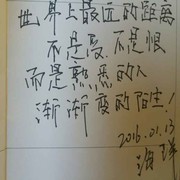 世界上最远的距离
不是爱.不是恨
而是熟悉的人
渐渐变的陌生!
2016.01.13